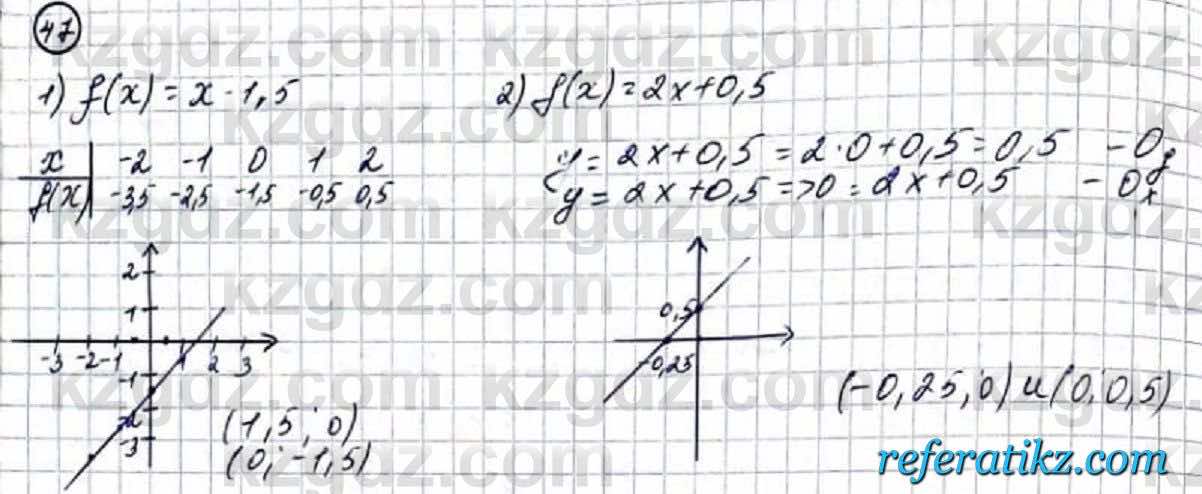 47
1) f(x) = x - 1,5
x | -2 -1 0 1 2
f(x) | -3,5 -2,5 -1,5 -0,5 0,5
2
1
-3 -2 -1 1 2 3
-1
-2
-3
(1,5; 0)
(0; -1,5)
2) f(x) = 2x + 0,5
y = 2x + 0,5 = 2·0 + 0,5 = 0,5 - Oy
y = 2x + 0,5 => 0 = 2x + 0,5 - Ox
0,5
-0,25
(-0,25; 0) и (0; 0,5)
kzgdz.com
referatikz.com